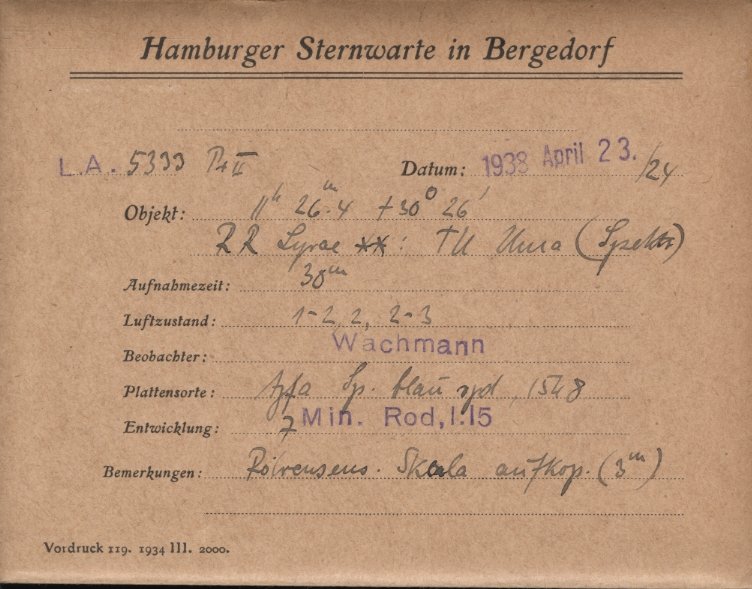 Hamburger Sternwarte in Bergedorf
L.A. 5393 Pr II Datum: 1938 April 23. /24
Objekt: 11h 26m.4 +30° 26'
RR Lyrae **: TU Uma (Spektr)
Aufnahmezeit: 30m
Luftzustand: 1-2, 2, 2-3
Beobachter: Wachmann
Plattensorte: Agfa Sp. blau 1548
Entwicklung: 7 Min. Rod, 1:15
Bemerkungen: Röhrensens. Skala aufkop. (3m)
Vordruck 119. 1934 III. 2000.